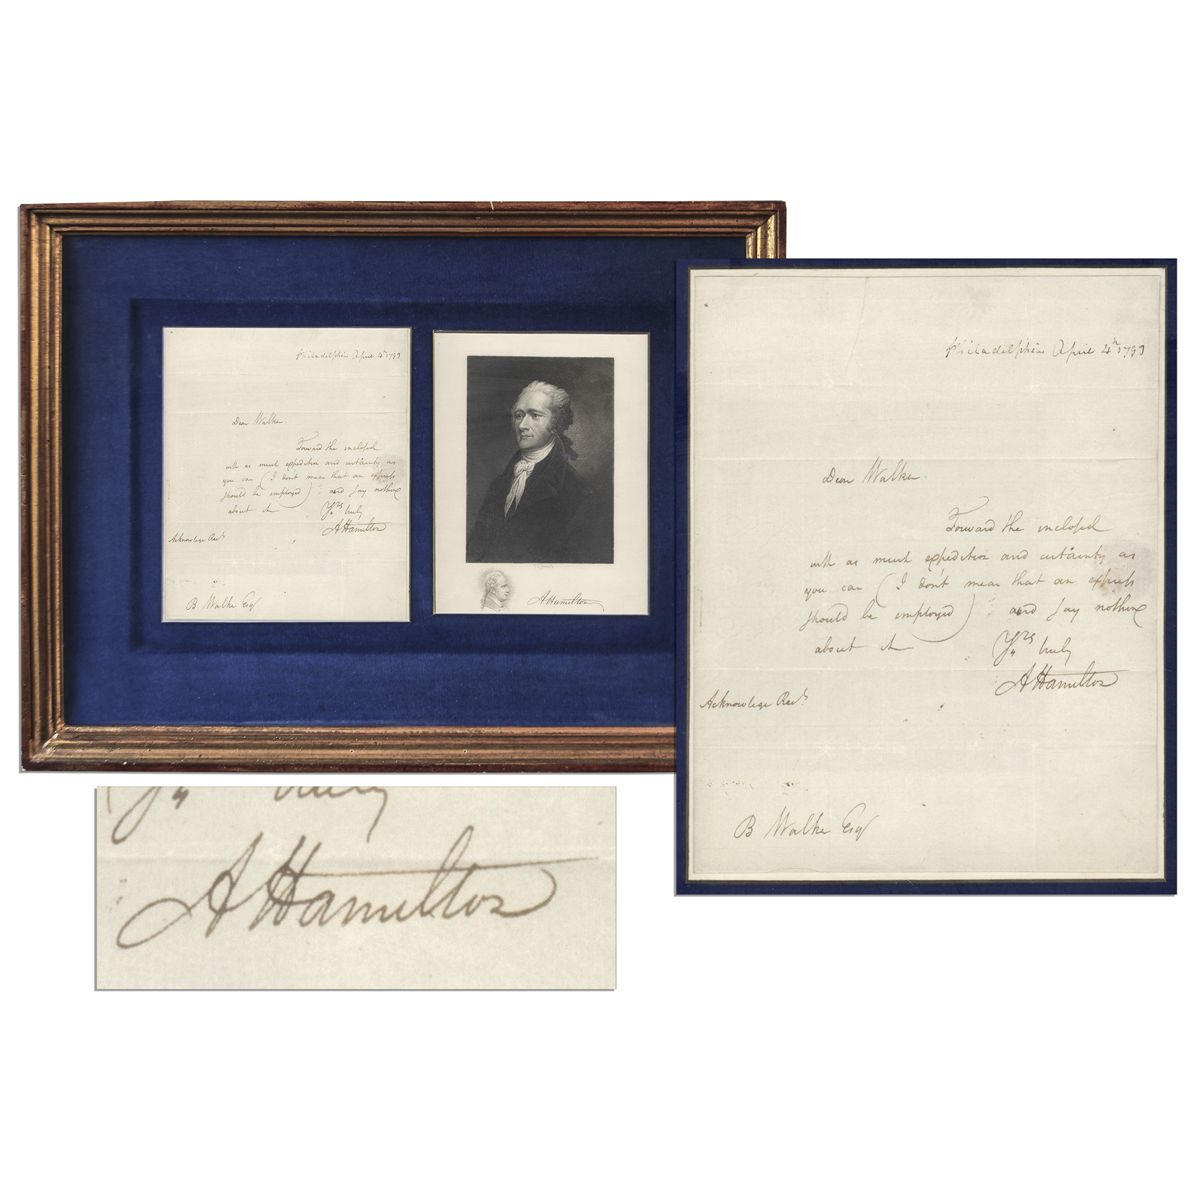 Philadelphia April 4th 1793
Dear Walker
Forward the inclosed
with as much expedition and certainty as
you can (I don't mean that an express
should be employed) and say nothing
about it
Yrs truly
A Hamilton
Acknowlege Recd
B Walker Esqr
A Hamilton
Philadelphia April 4th 1793
Dear Walker
Forward the inclosed
with as much expedition and certainty as
you can (I don't mean that an express
should be employed) and say nothing
about it
Yrs truly
A Hamilton
Acknowlege Recd
B Walker Esqr
Yrs truly
A Hamilton